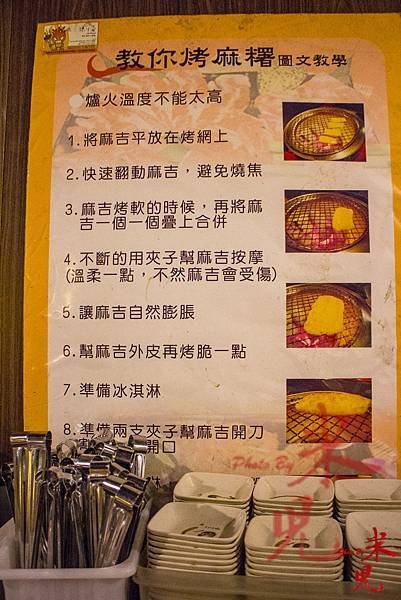 教你烤麻糬圖文教學
爐火溫度不能太高
1.將麻吉平放在烤網上
2.快速翻動麻吉，避免燒焦
3.麻吉烤軟的時候，再將麻
吉一個一個疊上合併
4.不斷的用夾子幫麻吉按摩
(溫柔一點，不然麻吉會受傷)
5.讓麻吉自然膨脹
6.幫麻吉外皮再烤脆一點
7.準備冰淇淋
8.準備兩支夾子幫麻吉開刀
開口
淋
Photo By
米兒
米兒